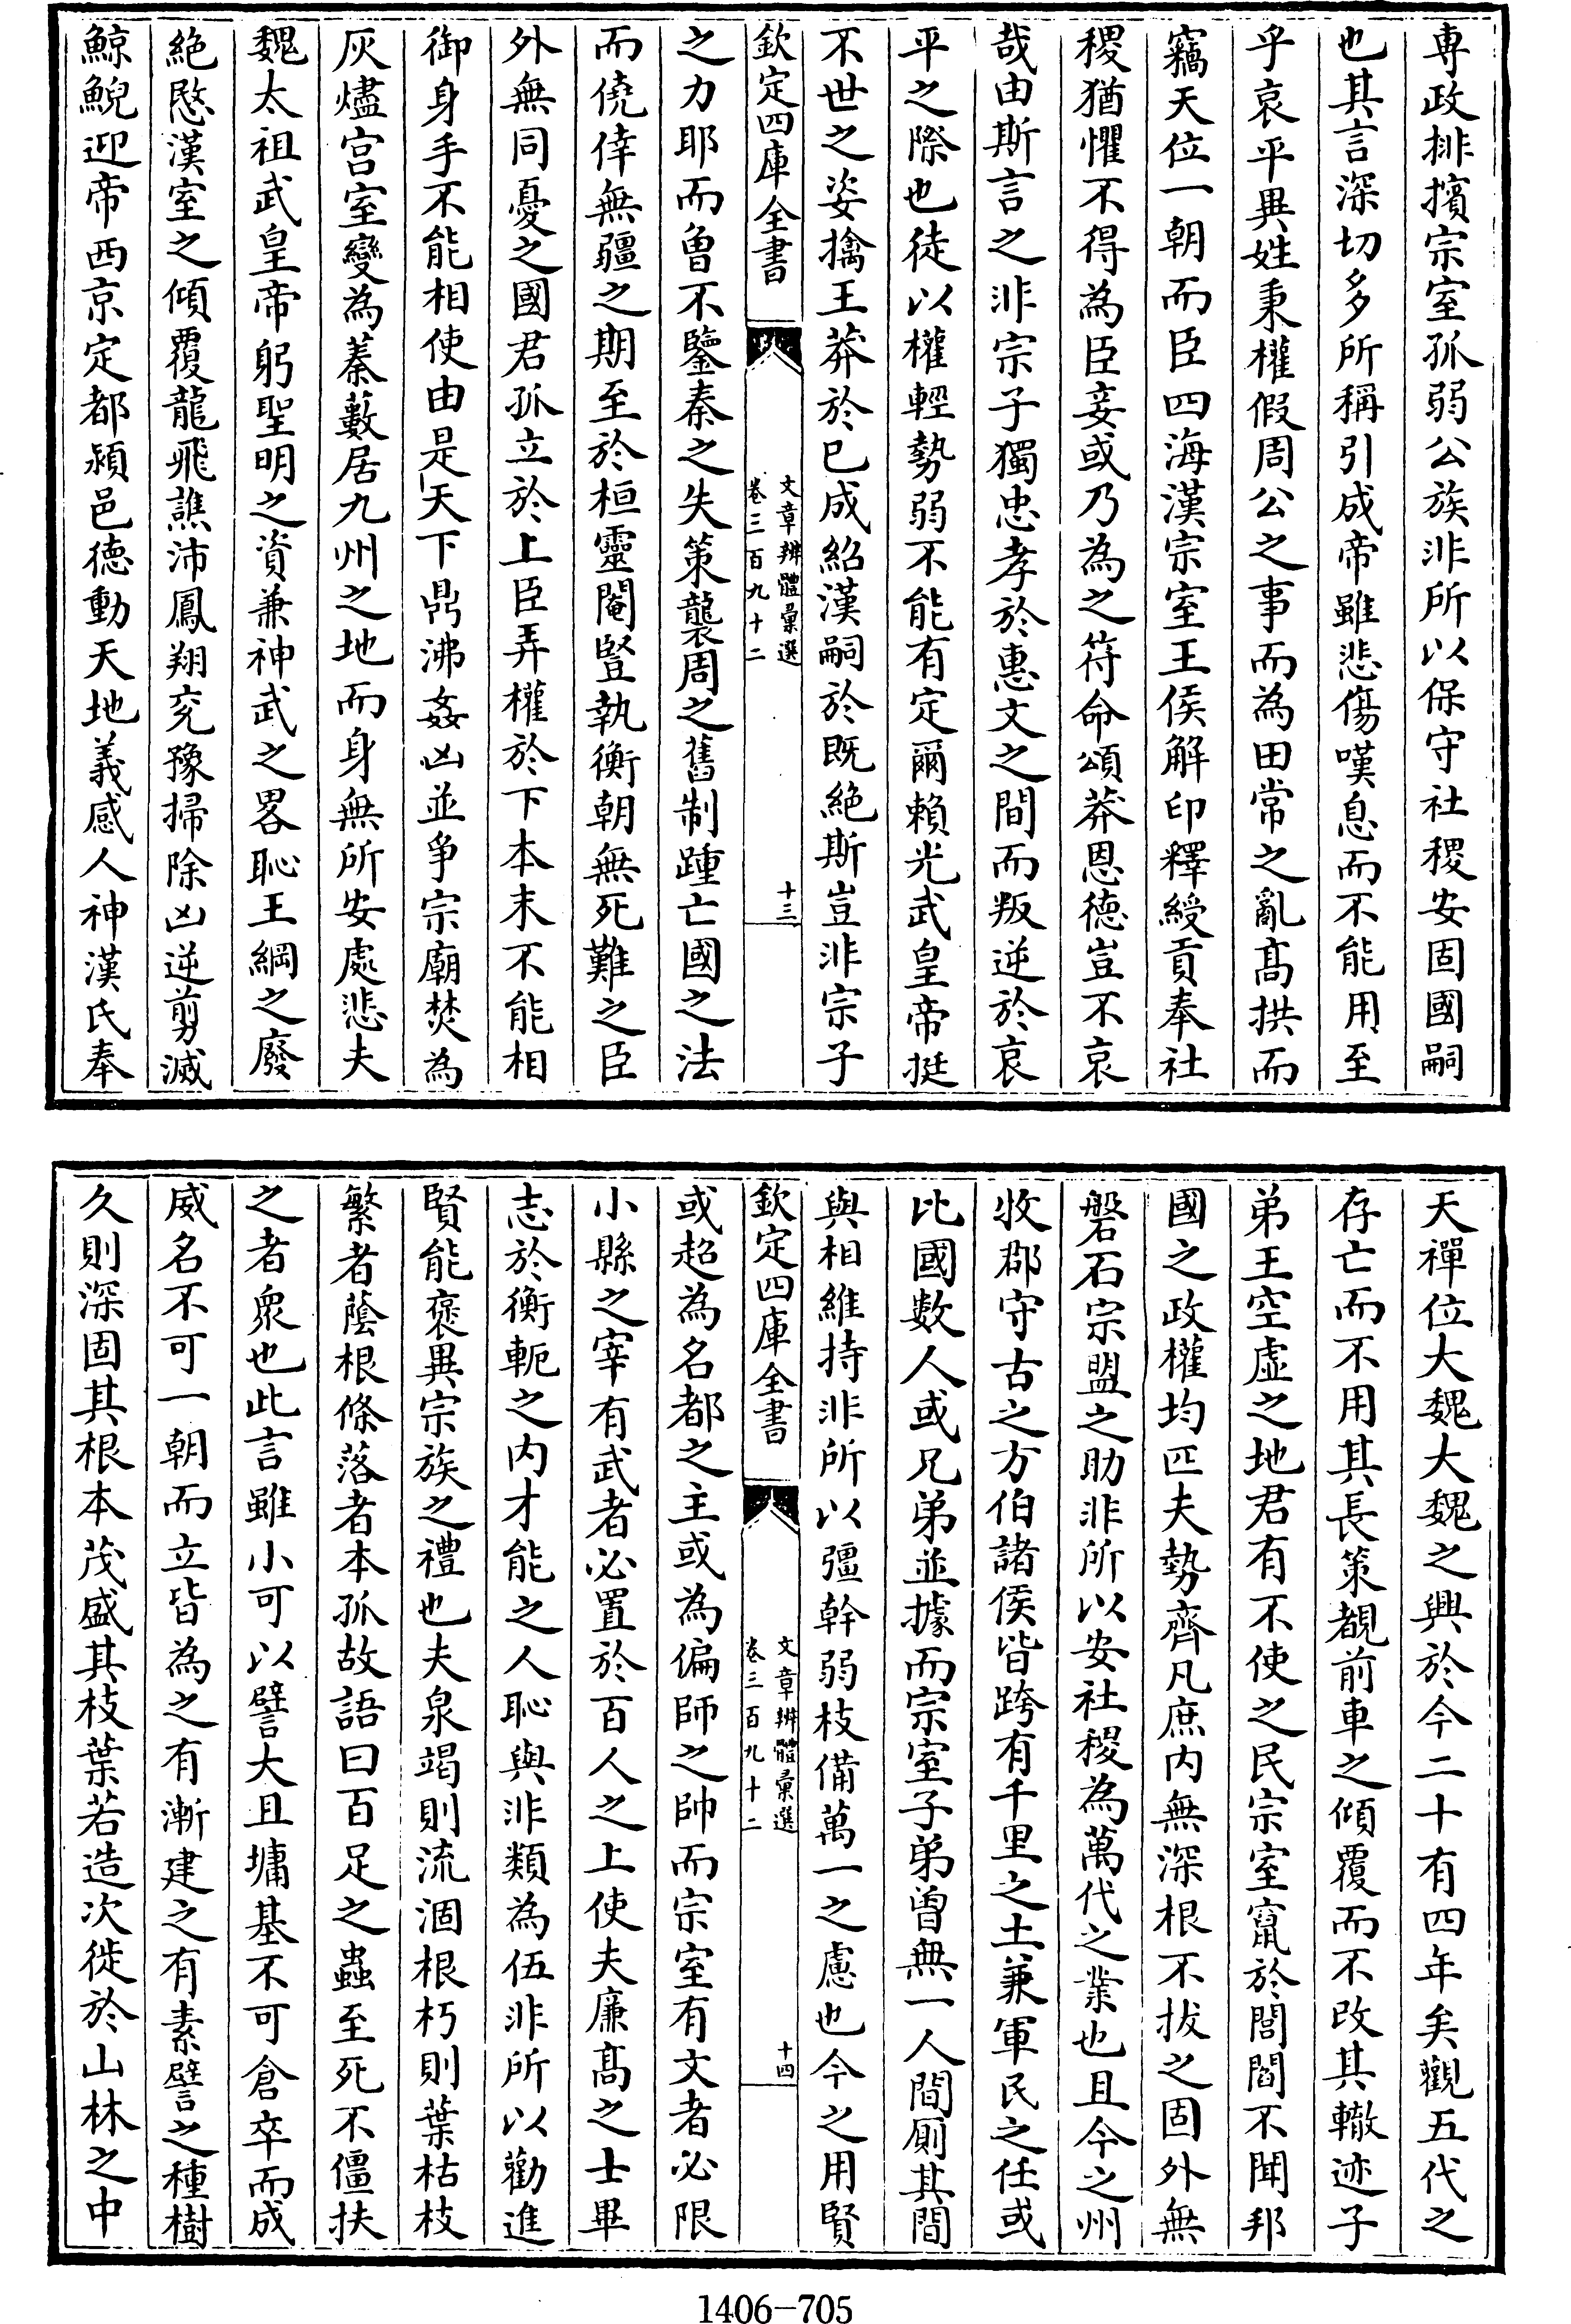 専政排擯宗室孤弱公族非所以保守社稷安固國嗣
也其言深切多所稱引成帝雖悲傷嘆息而不能用至
乎哀平異姓秉權假周公之事而為田常之亂髙拱而
竊天位一朝而臣四海漢宗室王侯解印釋綬貢奉社
稷猶懼不得為臣妾或乃為之符命頌莽恩德豈不哀
哉由斯言之非宗子獨忠孝於惠文之間而叛逆於哀
平之際也徒以權輕勢弱不能有定爾賴光武皇帝挺
不世之姿擒王莽於已成紹漢嗣於既絶斯豈非宗子
欽定四庫全書
文章辨體彚選
卷三百九十二
十三
之力耶而曾不鑒秦之失策襲周之舊制踵亡國之法
而僥倖無疆之期至於桓靈閹豎執衡朝無死難之臣
外無同憂之國君孤立於上臣弄權於下本末不能相
御身手不能相使由是天下鼎沸姦凶並爭宗廟焚為
灰燼宫室變為蓁藪居九州之地而身無所安處悲夫
魏太祖武皇帝躬聖明之資兼神武之畧恥王綱之廢
絶愍漢室之傾覆龍飛譙沛鳳翔兖豫掃除凶逆剪滅
鯨鯢迎帝西京定都潁邑德動天地義感人神漢氏奉
天禪位大魏大魏之興於今二十有四年矣觀五代之
存亡而不用其長策覩前車之傾覆而不改其轍迹子
弟王空虚之地君有不使之民宗室竄於閭閻不聞邦
國之政權均匹夫勢齊凡庶内無深根不拔之固外無
磐石宗盟之助非所以安社稷為萬代之業也且今之州
牧郡守古之方伯諸侯皆跨有千里之土兼軍民之任或
比國數人或兄弟並據而宗室子弟曾無一人間厠其間
與相維持非所以彊幹弱枝備萬一之慮也今之用賢
欽定四庫全書
文章辨體彚選
卷三百九十二
十四
或超為名都之主或為偏師之帥而宗室有文者必限
小縣之宰有武者必置於百人之上使夫廉髙之士畢
志於衡軛之内才能之人恥與非類為伍非所以勸進
賢能褒異宗族之禮也夫泉竭則流涸根朽則葉枯枝
繁者蔭根條落者本孤故語曰百足之蟲至死不僵扶
之者衆也此言雖小可以譬大且墉基不可倉卒而成
威名不可一朝而立皆為之有漸建之有素譬之種樹
久則深固其根本茂盛其枝葉若造次徙於山林之中
1406-705